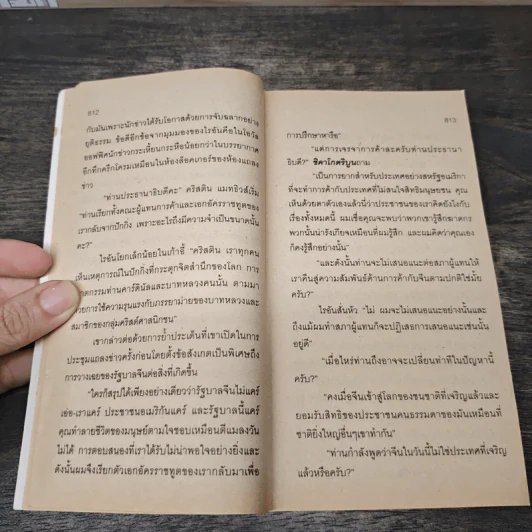 812
กับมันเพราะนักข่าวได้รับโอกาสด้วยการจับฉลากอย่าง
ยุติธรรม ข้อดีอีกข้อจากมุมมองของไรอันคือในโอวัล
ออฟฟิศนักข่าวกระเหี้ยนกระหือน้อยกว่าในบรรยากาศ
อึกทึกครึกโครมเหมือนในห้องล็อคเกอร์ของห้องแถลง
ข่าว
“ท่านประธานาธิบดีคะ” คริสติน แมทธิวส์เริ่ม
“ท่านเรียกทั้งคณะผู้แทนการค้าและเอกอัครราชทูตของ
เรากลับจากปักกิ่ง เพราะอะไรถึงมีความจำเป็นขนาดนั้น
คะ?”
ไรอันโยกเล็กน้อยในเก้าอี้ “คริสติน เราทุกคน
เห็นเหตุการณ์ในปักกิ่งที่กระตุกจิตสำนึกของโลก การ
ฆาตกรรมท่านคาร์ดินัลและบาทหลวงคนนั้น ตามมา
ด้วยการใช้ความรุนแรงกับภรรยาม่ายของบาทหลวงและ
สมาชิกของกลุ่มคริสต์ศาสนิกชน”
เขากล่าวต่อด้วยการย้ำประเด็นที่เขาเปิดในการ
ประชุมแถลงข่าวครั้งก่อนโดยตั้งข้อสังเกตเป็นพิเศษถึง
การวางเฉยของรัฐบาลจีนต่อสิ่งที่เกิดขึ้น
“ใครก็สรุปได้เพียงอย่างเดียวว่ารัฐบาลจีนไม่แคร์
เอ่อ-เราแคร์ ประชาชนอเมริกันแคร์ และรัฐบาลนี้แคร์
คุณทำลายชีวิตของมนุษย์ตามใจชอบเหมือนตีแมลงวัน
ไม่ได้ การตอบสนองที่เราได้รับไม่น่าพอใจอย่างยิ่งและ
ดังนั้นผมจึงเรียกตัวเอกอัครราชทูตของเรากลับมาเพื่อ
813
การปรึกษาหารือ”
“แต่การเจรจาการค้าละครับท่านประธานา
ธิบดี?” ชิคาโกตริบูนถาม
“เป็นการยากสำหรับประเทศอย่างสหรัฐอเมริกา
ที่จะทำการค้ากับประเทศที่ไม่สนใจสิทธิมนุษยชน คุณ
เห็นด้วยตาตัวเองแล้วนี่ว่าประชาชนของเราคิดยังไงกับ
เรื่องทั้งหมดนี้ ผมเชื่อคุณจะพบว่าพวกเขารู้สึกฆาตกร
พวกนั้นน่ารังเกียจเหมือนที่ผมรู้สึก และผมคิดว่าคุณเอง
ก็คงรู้สึกอย่างนั้น”
“และดังนั้นท่านจะไม่เสนอแนะต่อสภาผู้แทนให้
เราคืนสู่ความสัมพันธ์ด้านการค้ากับจีนตามปกติใช่มั้ย
ครับ?”
ไรอันสั่นหัว “ไม่ ผมจะไม่เสนอแนะอย่างนั้นและ
ถึงแม้ผมทำสภาผู้แทนก็จะปฏิเสธการเสนอแนะเช่นนั้น
อยู่ดี”
“เมื่อไหร่ท่านถึงอาจจะเปลี่ยนท่าทีในปัญหานี้
ครับ?”
“คงเมื่อจีนเข้าสู่โลกของชนชาติที่เจริญแล้วและ
ยอมรับสิทธิของประชาชนคนธรรมดาของมันเหมือนที่
ชาติยิ่งใหญ่อื่นๆเขาทำกัน”
“ท่านกำลังพูดว่าจีนในวันนี้ไม่ใช่ประเทศที่เจริญ
แล้วหรือครับ?”